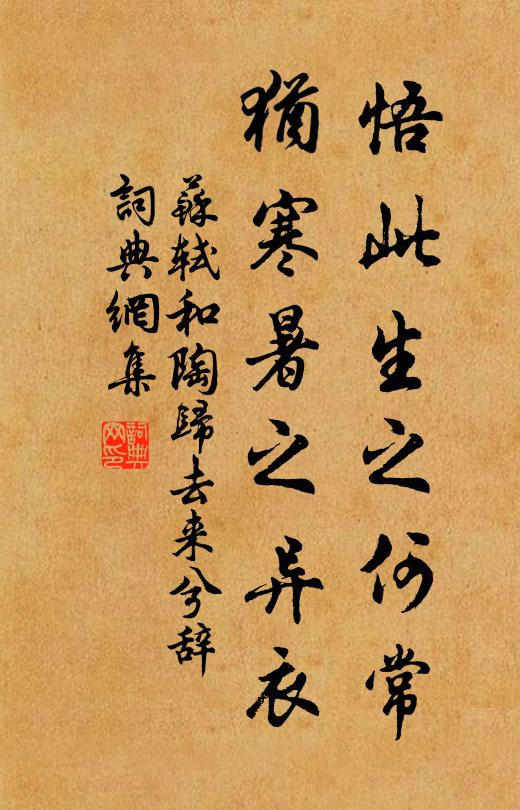 悟此生之何常
猶寒暑之异衣
蘇軾和陶歸去来兮辞
詞典網集
詞典网印